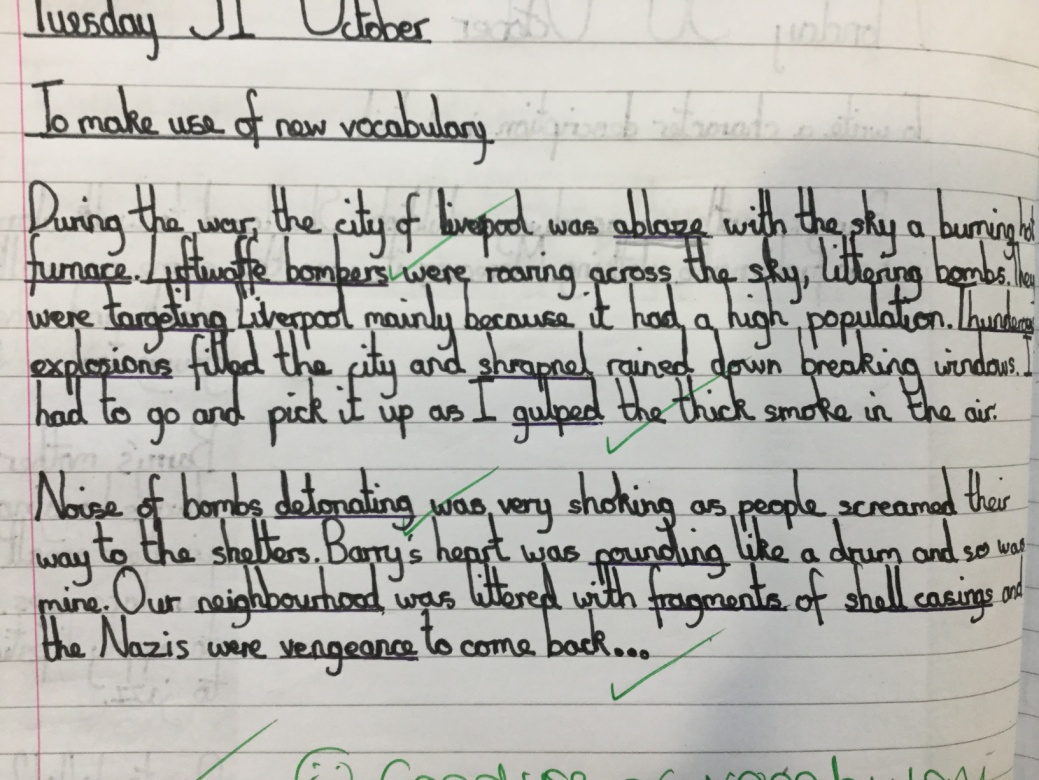 Tuesday 31 October
To make use of new vocabulary
During the war, the city of liverpool was ablaze with the sky a burning hot
furnace. Liftwaffe bombers were roaring across the sky, littering bombs. They
were targeting Liverpool mainly because it had a high population. Thunderous
explosions filled the city and shrapnel rained down breaking windows. I
had to go and pick it up as I gulped the thick smoke in the air.
Noise of bombs detonating was very shoking as people screamed their
way to the shelters. Barry's heart was pounding like a drum and so was
mine. Our neighbourhood was littered with fragments of shell casings and
the Nazis were vengeance to come back...
Good use of vocabulary